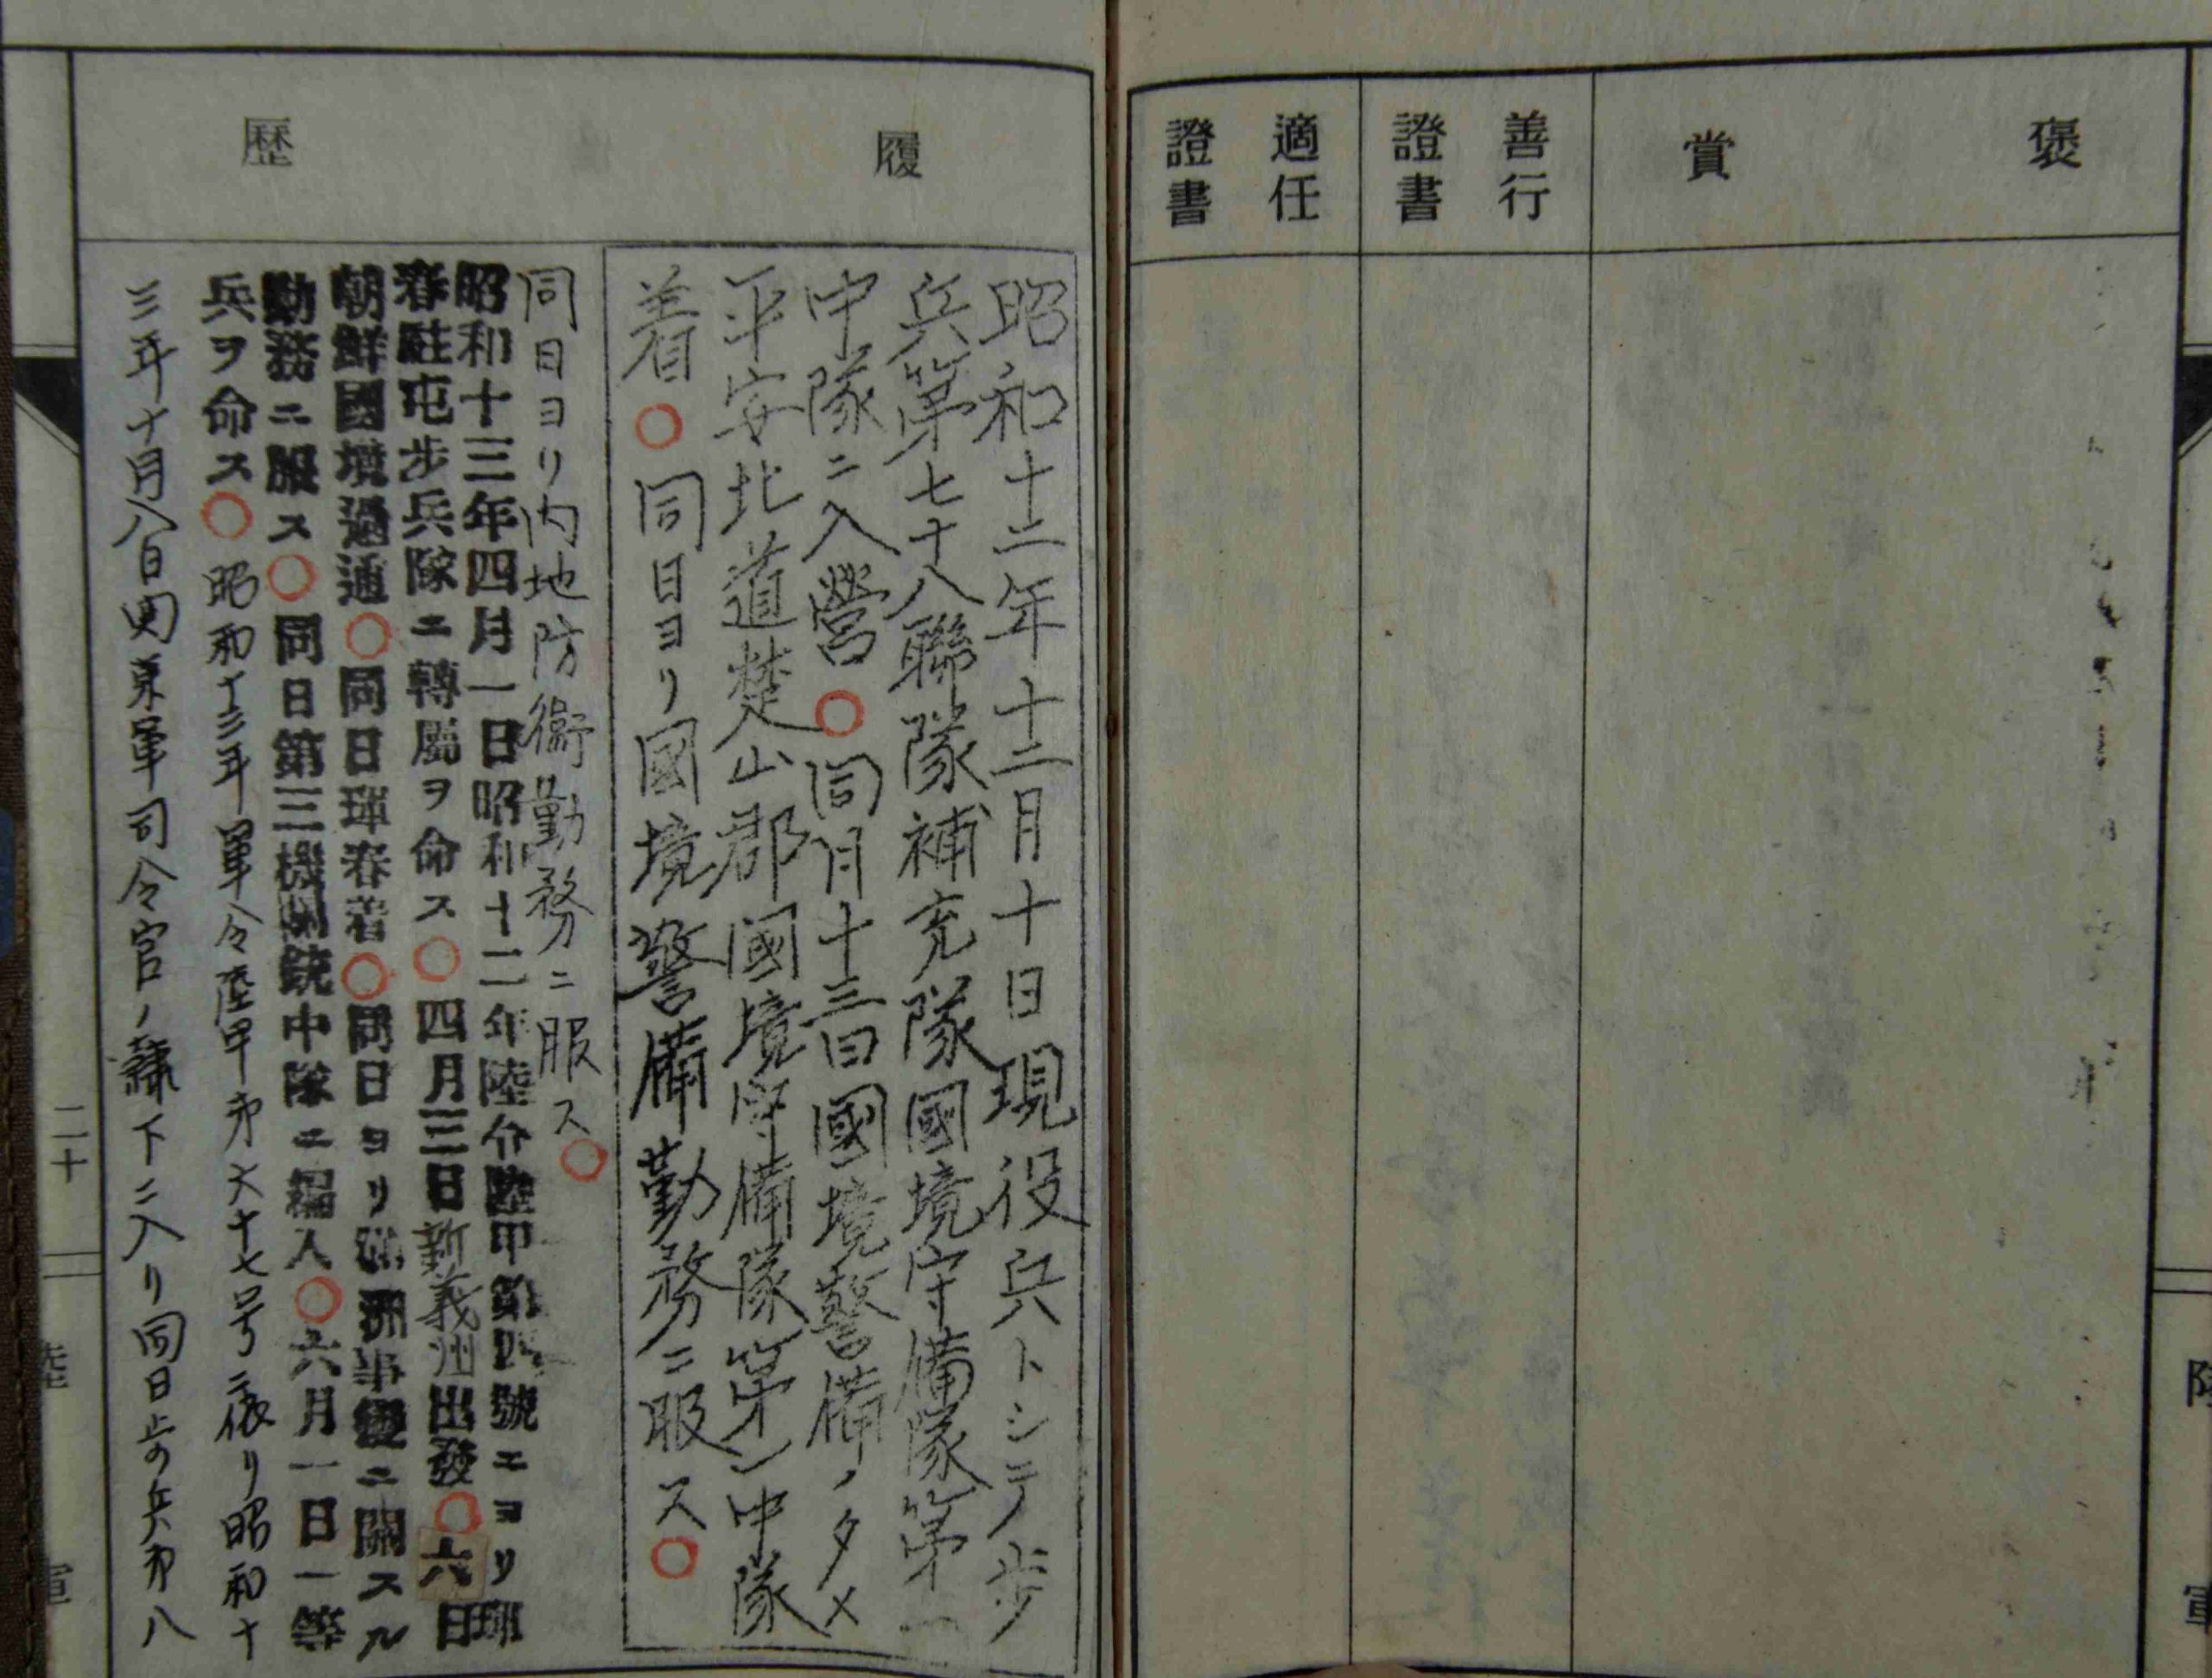 褒賞
善行證書
適任證書
履歷
昭和十二年十二月十日現役兵トシテ歩
兵第七十八聯隊補充隊國境守備隊第一
中隊ニ入營○同月十三日國境警備ノタメ
平安北道楚山郡國境守備隊第一中隊
着○同日ヨリ國境警備勤務ニ服ス○
同日ヨリ内地防衛勤務ニ服ス○
昭和十三年四月一日昭和十二年陸令陸甲第四號ニヨリ琿
春駐屯步兵隊ニ轉屬ヲ命ス○四月三日新義州出發○六日
朝鮮國境通過○同日琿春着○同日ヨリ滿洲事變ニ關スル
勤務ニ服ス○同日第三機關銃中隊ニ編入○六月一日一等
兵ヲ命ス○昭和十三年軍令陸甲第六十七号ニ依リ昭和十
三年十月八日関東軍司令官ノ隷下ニ入リ同日歩兵第八
二十
陸軍
陸軍